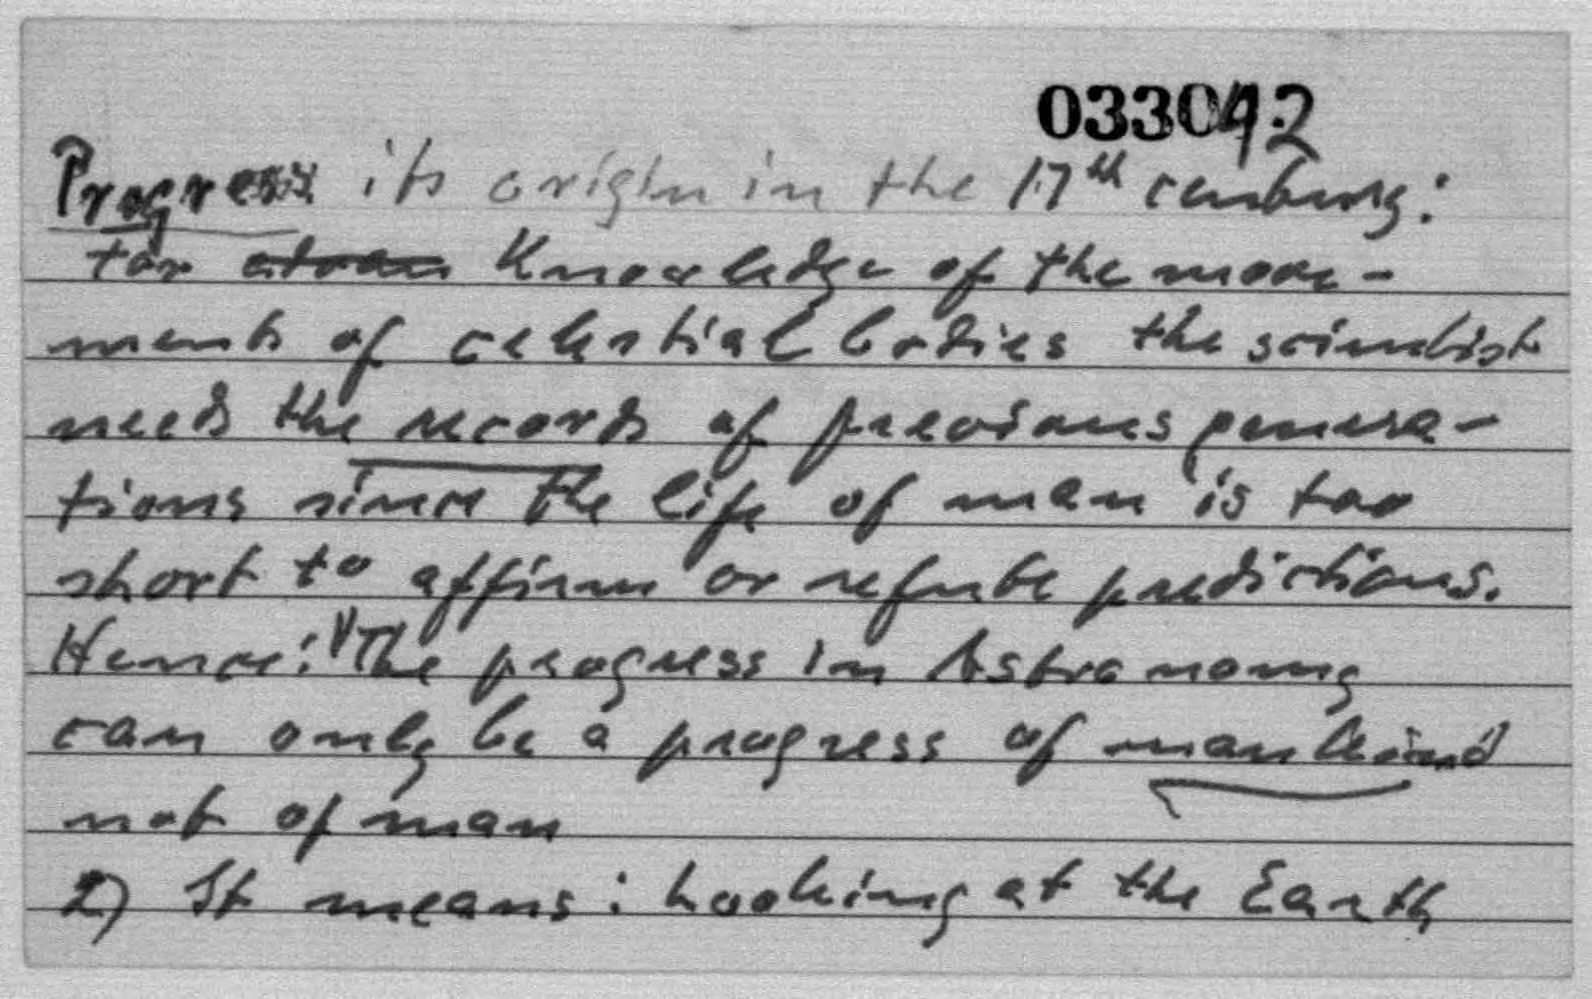 033092
Progress: its origin in the 17th century:
For Knowledge of the move-
ments of celestial bodies the scientist
needs the records of previous genera-
tions since the life of man is too
short to affirm or refute predictions.
Hence: "The progress in Astronomy
can only be a progress of mankind
not of man
2) It means: Looking at the Earth